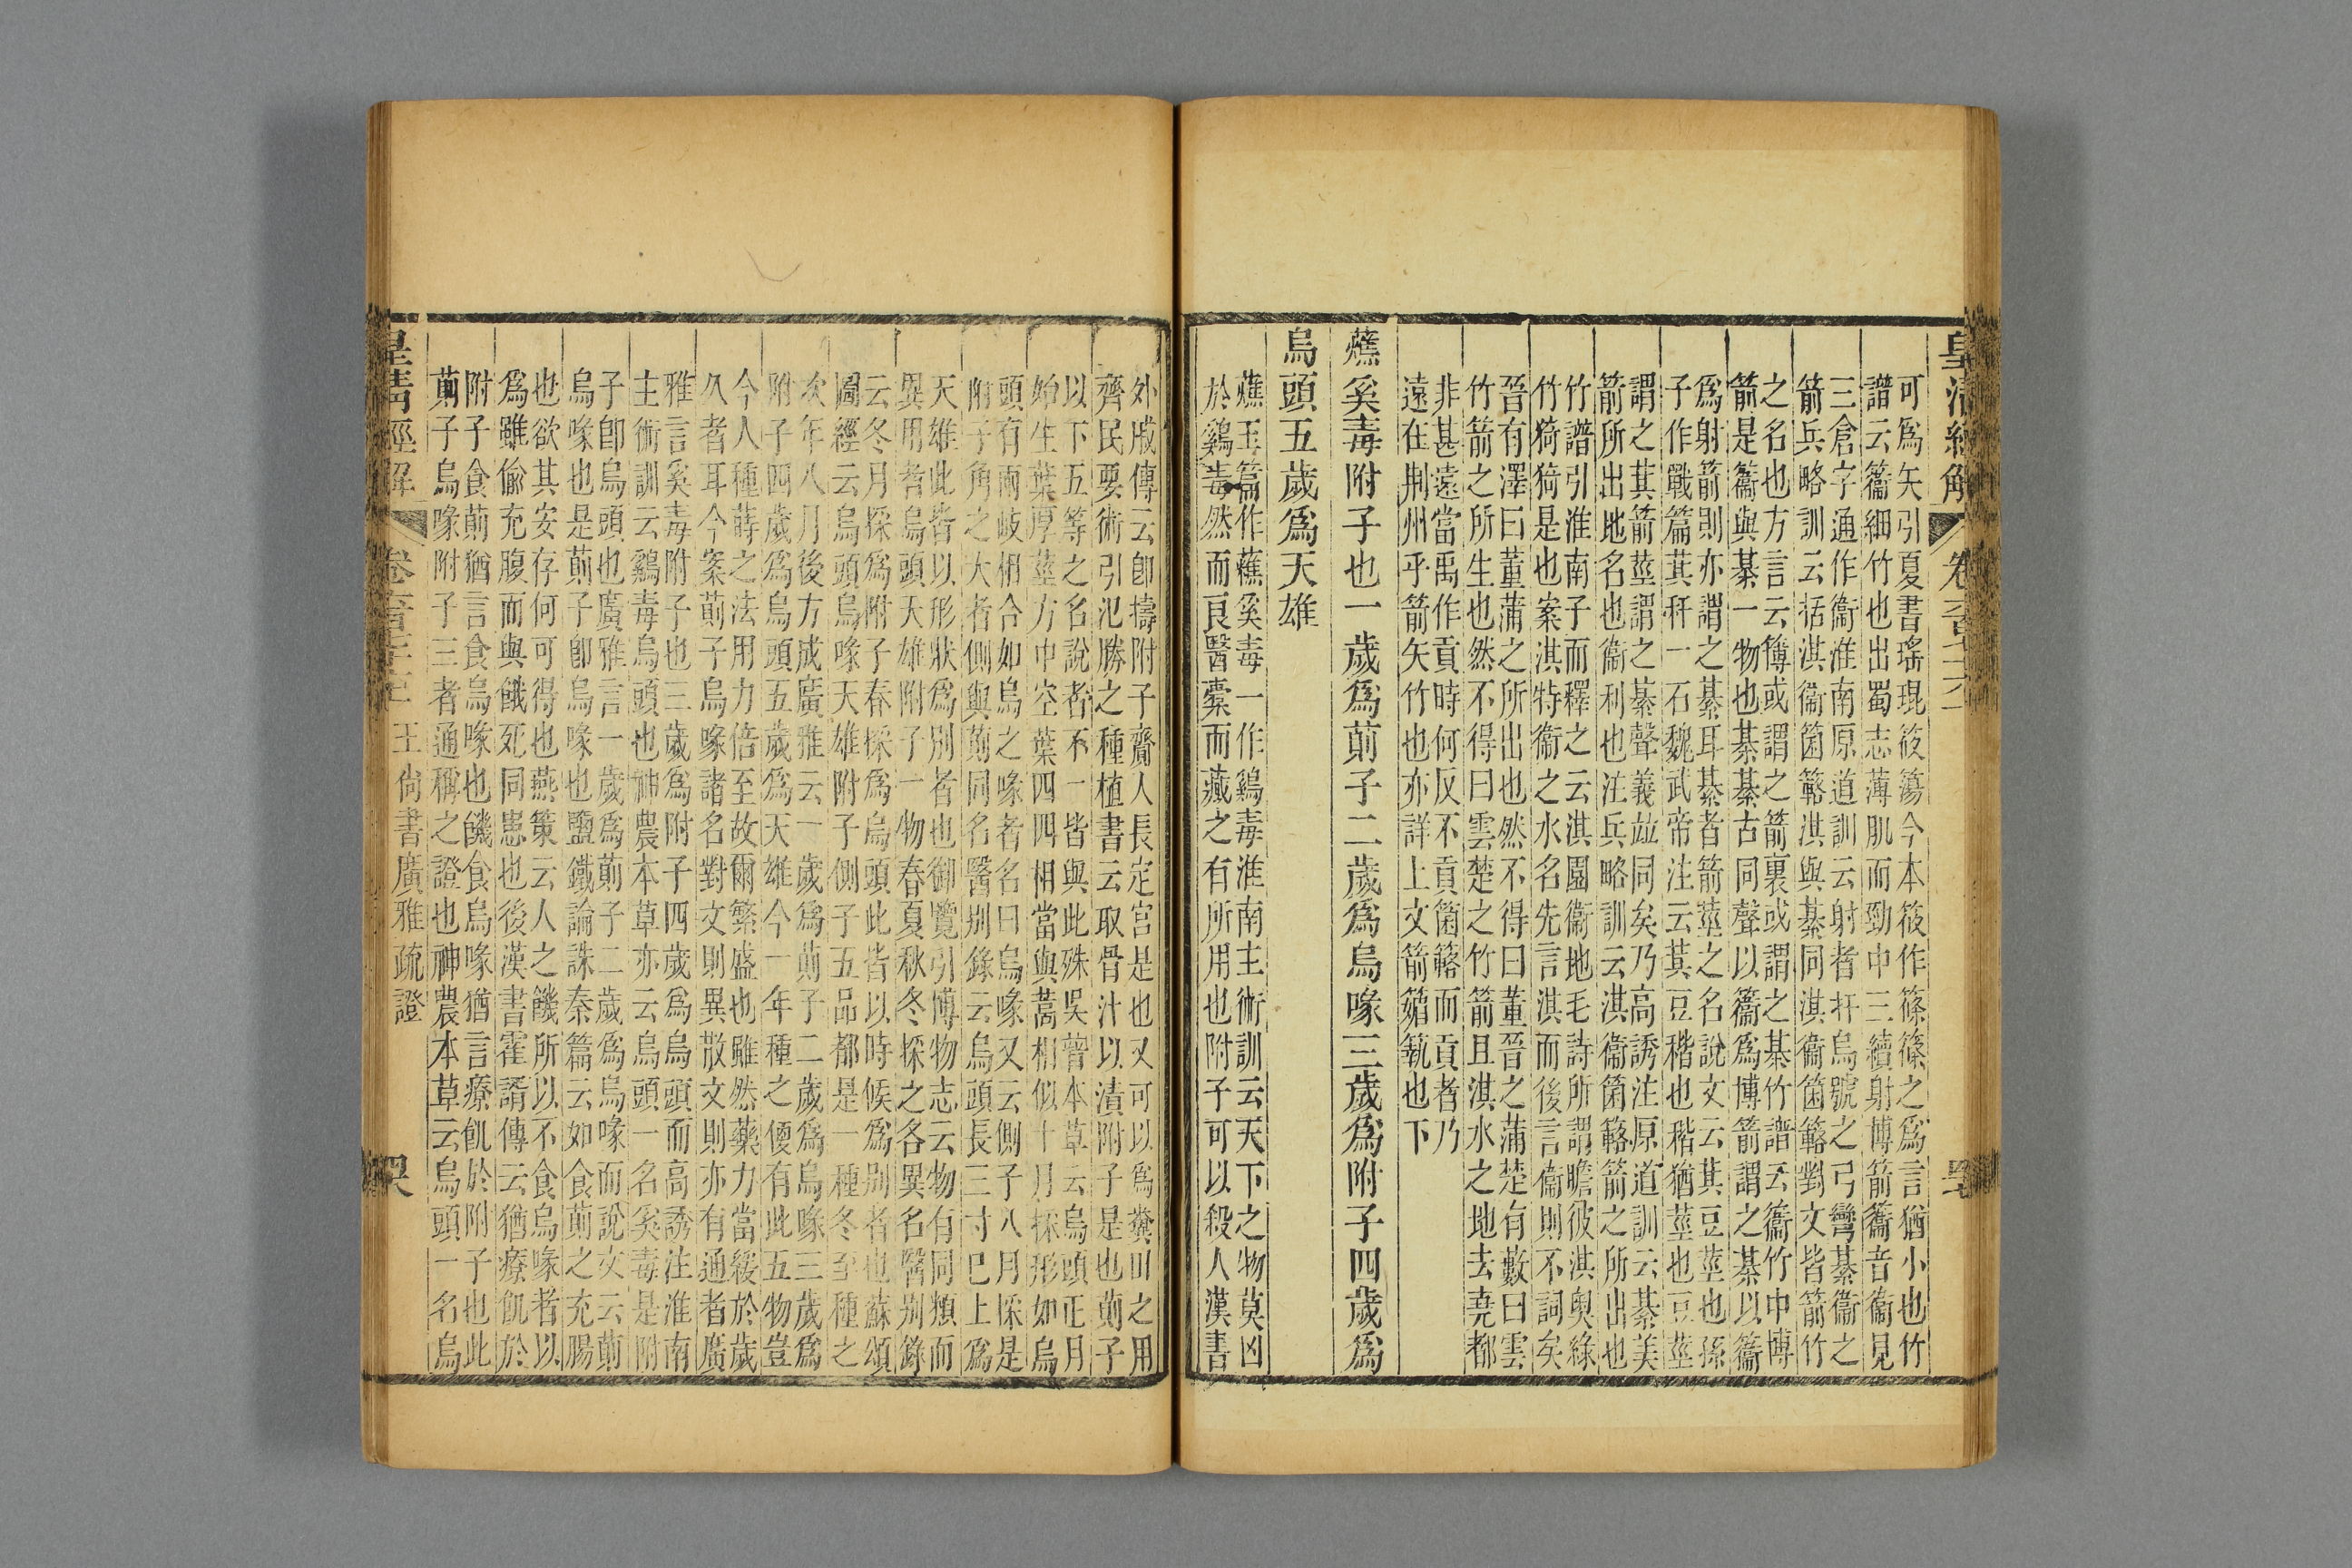 皇清經解 卷
可爲矢引夏書瑤琨筱簜今本筱作篠篠之爲言猶小也竹
譜云簵細竹也出蜀志薄肌而勁中三續射博箭簵音衞見
三倉字通作衞淮南原道訓云射者扜烏號之弓彎棊衞之
箭兵略訓云括淇衞箘簬淇與棊同淇衞箘簬對文皆箭竹
之名也方言云簙或謂之箭裏或謂之棊竹譜云簵竹中博
箭是簵與棊一物也棊棊古同聲以簵爲博箭謂之棊以簵
爲射箭則亦謂之棊耳棊者箭莖之名說文云萁豆莖也孫
子作戰篇萁秆一石魏武帝注云萁豆稭也稭猶莖也豆莖
謂之萁箭莖謂之棊聲義竝同矣乃高誘注原道訓云棊美
箭所出地名也衞利也注兵略訓云淇衞箘簬箭之所出也
竹譜引淮南子而釋之云淇園衞地毛詩所謂瞻彼淇奧綠
竹猗猗是也案淇特衞之水名先言淇而後言衞則不詞矣
晉有澤曰董蒲之所出也然不得曰董晉之蒲楚有藪曰雲
竹箭之所生也然不得曰雲楚之竹箭且淇水之地去堯都
非甚遠當禹作貢時何反不貢箘簬而貢者乃
遠在荆州乎箭矢竹也亦詳上文箭䉋䈥也下
䕸奚毒附子也一歲爲萴子二歲爲烏喙三歲爲附子四歲爲
烏頭五歲爲天雄
䕸玉篇作䕸奚毒一作鷄毒淮南主術訓云天下之物莫凶
於鷄毒然而良醫橐而藏之有所用也附子可以殺人漢書
外戚傳云卽擣附子齎人長定宮是也又可以爲糞田之用
齊民要術引氾勝之種植書云取骨汁以漬附子是也萴子
以下五等之名說者不一皆與此殊吳普本草云烏頭正月
始生葉厚莖方中空葉四四相當與蒿相似十月採形如烏
頭有兩岐相合如烏之喙者名曰烏喙又云側子八月採是
附子角之大者側與萴同名醫别錄云烏頭長三寸巳上爲
天雄此皆以形狀爲别者也御覽引博物志云物有同類而
異用者烏頭天雄附子一物春夏秋冬採之各異名醫别錄
云冬月採爲附子春採爲烏頭此皆以時候爲别者也蘇頌
圖經云烏頭烏喙天雄附子側子五品都是一種冬至種之
次年八月後方成廣雅云一歲爲萴子二歲爲烏喙三歲爲
附子四歲爲烏頭五歲爲天雄今一年種之便有此五物豈
今人種蒔之法用力倍至故爾繁盛也雖然藥力當緩於歲
久者耳今案萴子烏喙諸名對文則異散文則亦有通者廣
雅言奚毒附子也三歲爲附子四歲爲烏頭而高誘注淮南
主術訓云鷄毒烏頭也神農本草亦云烏頭一名奚毒是附
子卽烏頭也廣雅言一歲爲萴子二歲爲烏喙而說文云萴
烏喙也是萴子卽烏喙也鹽鐵論誅秦篇云如食萴之充腸
也欲其安存何可得也燕策云人之饑所以不食烏喙者以
爲雖偷充腹而與餓死同患也後漢書霍諝傳云猶療飢於
附子食萴猶言食烏喙也饑食烏喙猶言療飢於附子也此
萴子烏喙附子三者通稱之證也神農本草云烏頭一名烏
皇清經解 卷 王尙書廣雅疏證